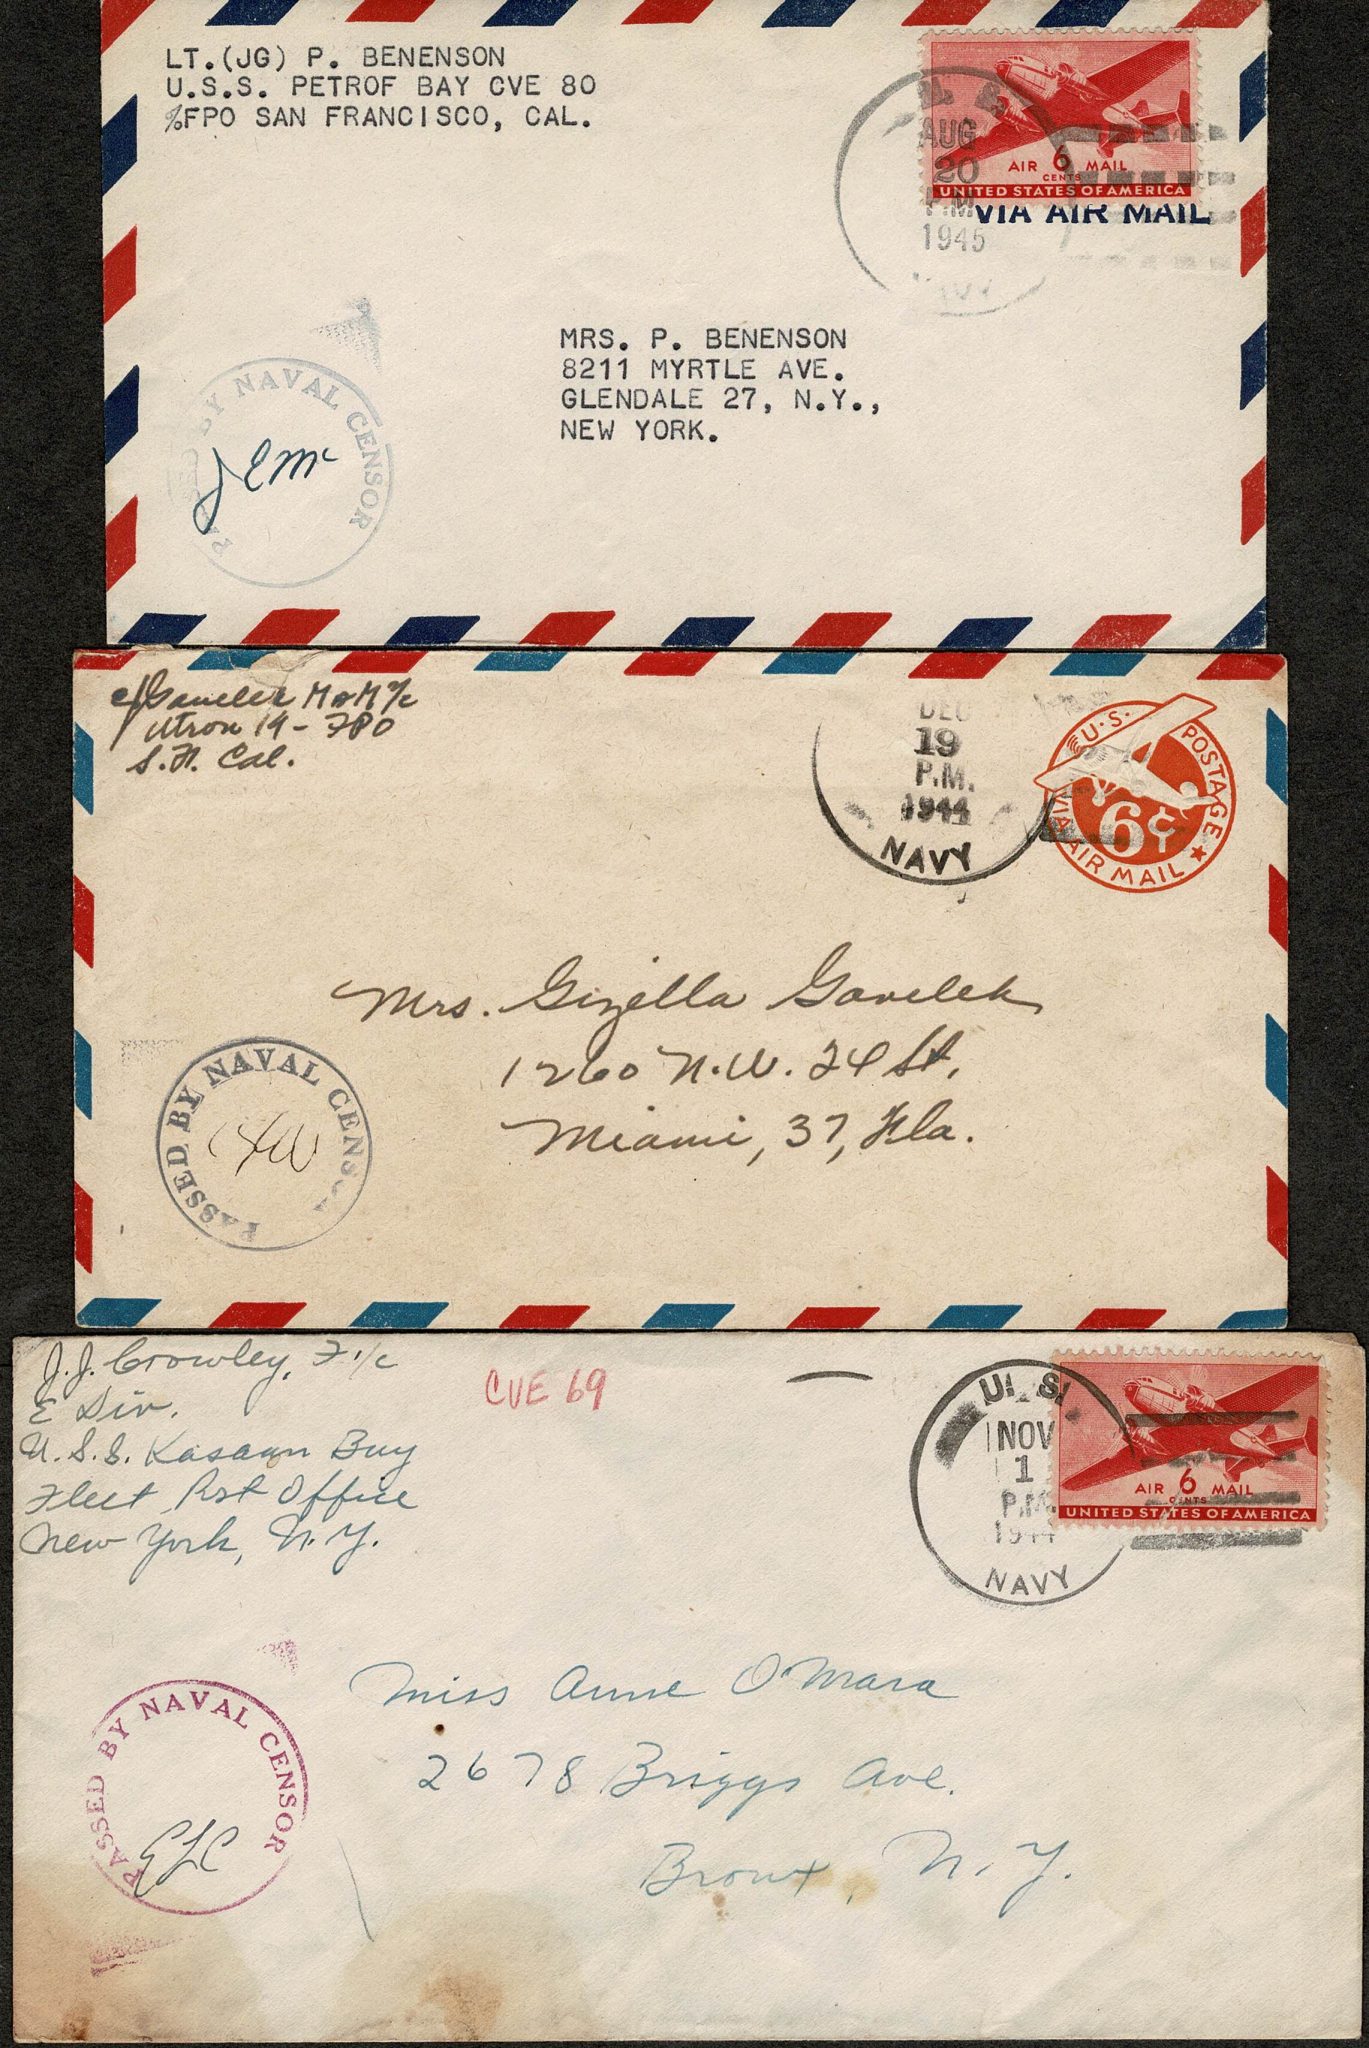 LT.(JG) P. BENENSON
U.S.S. PETROF BAY CVE 80
%FPO SAN FRANCISCO, CAL.
AUG
20
P.M.
1945
NAVY
AIR 6 MAIL
CENTS
UNITED STATES OF AMERICA
VIA AIR MAIL
MRS. P. BENENSON
8211 MYRTLE AVE.
GLENDALE 27, N.Y.,
NEW YORK.
PASSED BY NAVAL CENSOR
JEMc
Utron 19 - FPO
S.F. Cal.
DEC
19
P.M.
1944
NAVY
U.S. POSTAGE
6¢
VIA AIR MAIL
Mrs. Gizella Gavelek
1260 N.W. 24 St.
Miami, 37, Fla.
PASSED BY NAVAL CENSOR
J.J. Crowley, F1/c
E Div.
U.S.S. Kasaan Bay
Fleet Post Office
New York, N.Y.
CVE 69
U. S.
NOV
1
P.M.
1944
NAVY
AIR 6 MAIL
CENTS
UNITED STATES OF AMERICA
Miss Anne O'Mara
2678 Briggs Ave.
Bronx, N.Y.
PASSED BY NAVAL CENSOR